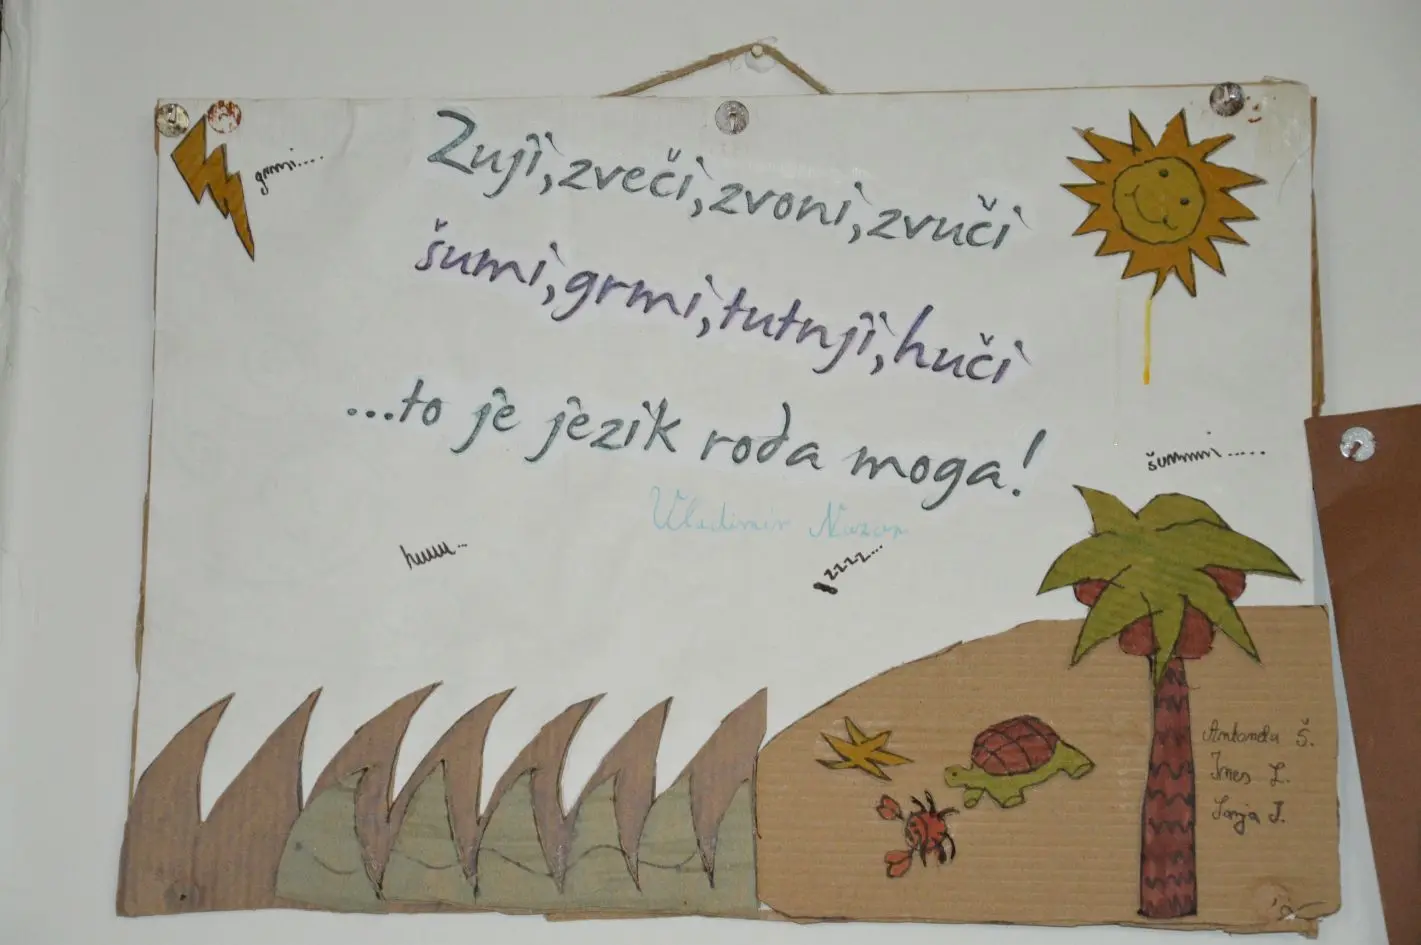 grmi....
Zuji, zveči, zvoni, zvuči
šumi, grmi, tutnji, huči
...to je jezik roda moga!
Vladimir Nazor
šummi.....
huuu...
zzzz...
Antonela Š.
Ines L.
Sanja J.